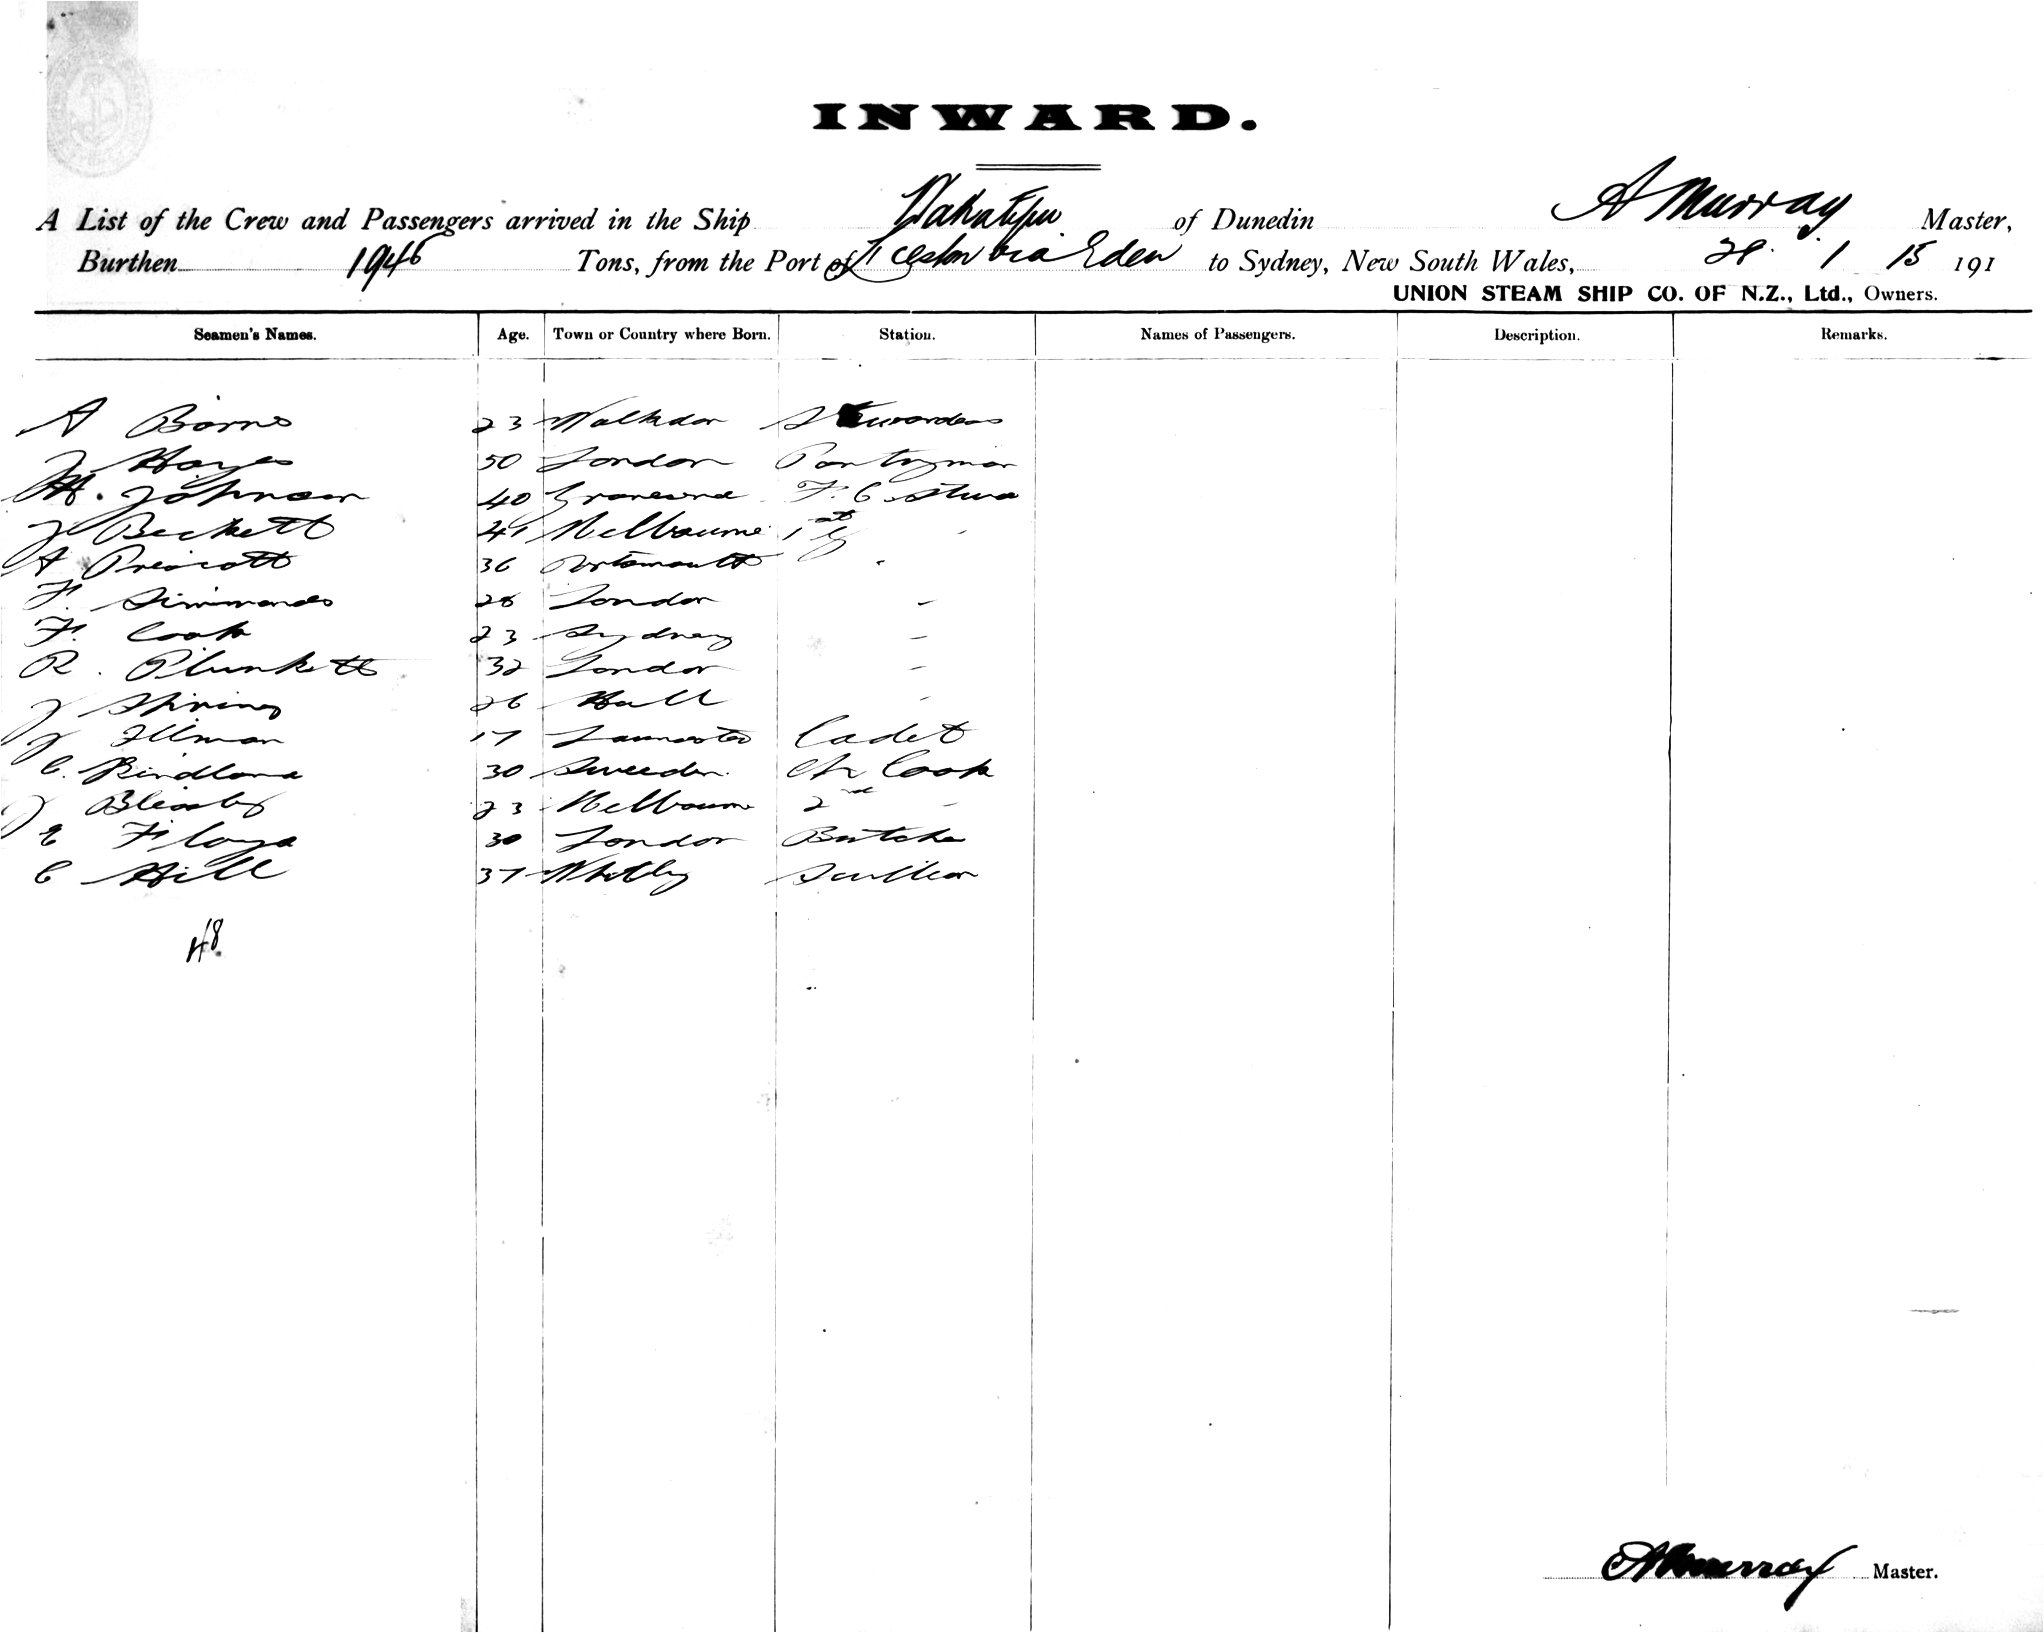 INWARD.
A List of the Crew and Passengers arrived in the Ship Wakatipu of Dunedin A Murray Master,
Burthen 1946 Tons, from the Port of L'ceston via Eden to Sydney, New South Wales, 28. 1 15 191
UNION STEAM SHIP CO. OF N.Z., Ltd., Owners.
Seamen's Names. Age. Town or Country where Born. Station. Names of Passengers. Description. Remarks.
A 23 Stewardess
J Hayes 50 London Pantryman
M. Johnson 40 F. C Stwd
J Beckett 41 Melbourne 1st
A Prescott 36 Portsmouth
F. Simmonds 26 London -
F. Cook 23 Sydney -
R. Plunkett 32 London -
J 26 Hull -
J Illman 17 Cadet
C. 30 Sweeden. Ch Cook
J Bleasby 23 Melbourne 2nd -
E Floyd 30 London Butcher
C Hill 37 Whitby Scullion
48.
A Murray Master.